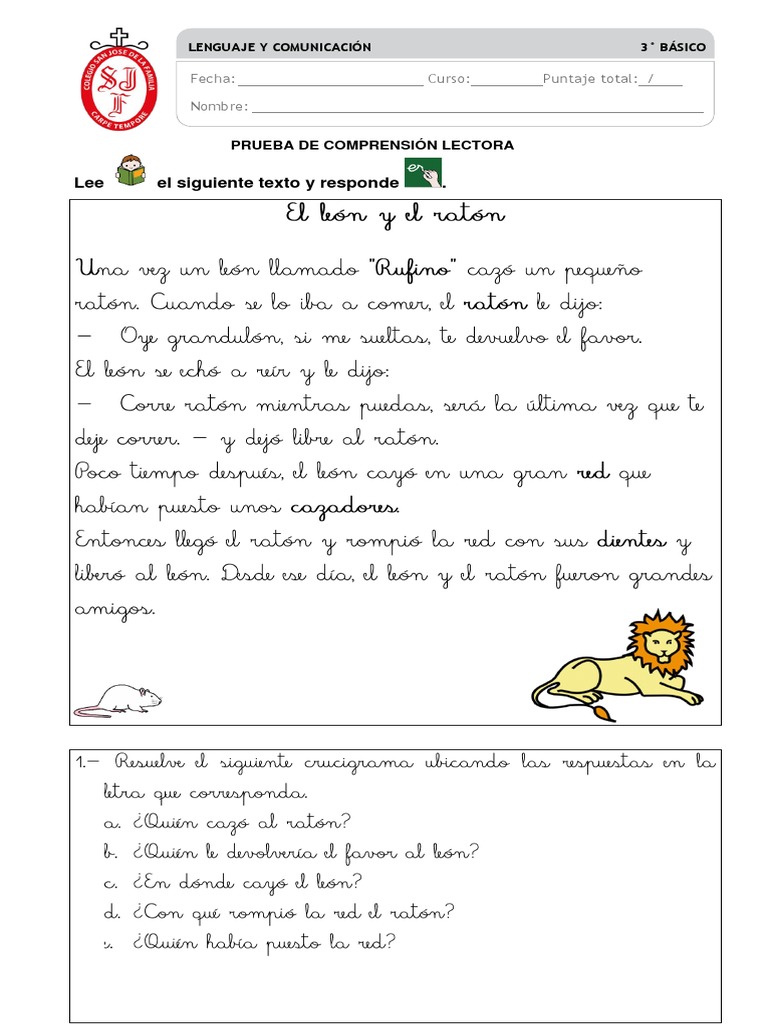 COLEGIO SAN JOSE DE LA FAMILIA
SJF
CARPE TEMPORE
LENGUAJE Y COMUNICACIÓN 3° BÁSICO
Fecha: Curso: Puntaje total: /
Nombre:
PRUEBA DE COMPRENSIÓN LECTORA
Lee el siguiente texto y responde .
El león y el ratón
Una vez un león llamado "Rufino" cazó un pequeño
ratón. Cuando se lo iba a comer, el ratón le dijo:
– Oye grandulón, si me sueltas, te devuelvo el favor.
El león se echó a reír y le dijo:
– Corre ratón mientras puedas, será la última vez que te
deje correr. – y dejó libre al ratón.
Poco tiempo después, el león cayó en una gran red que
habían puesto unos cazadores.
Entonces llegó el ratón y rompió la red con sus dientes y
liberó al león. Desde ese día, el león y el ratón fueron grandes
amigos.
1.- Resuelve el siguiente crucigrama ubicando las respuestas en la
letra que corresponda.
a. ¿Quién cazó al ratón?
b. ¿Quién le devolvería el favor al león?
c. ¿En dónde cayó el león?
d. ¿Con qué rompió la red el ratón?
e. ¿Quién había puesto la red?